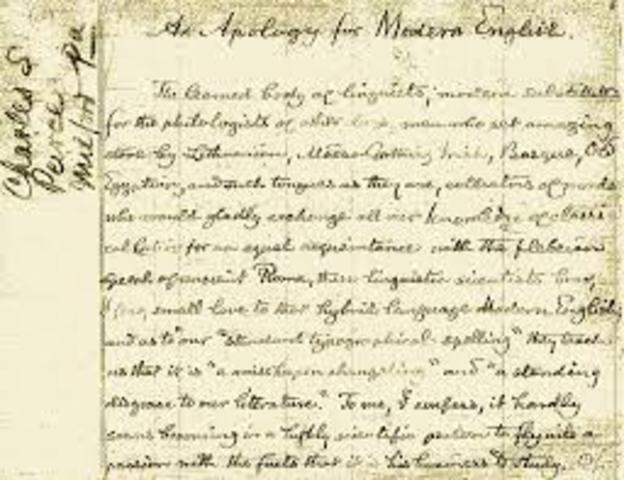 Charles S
Peirce
Milford Pa
An Apology for Modern English.
The learned body of linguists, modern substitutes
for the philologists of other days, men who set amazing
store by Lithuanian, Moeso-Gothic, Irish, Basque, Old
Egyptian, and such tongues as they are, collectors of words
who would gladly exchange all our knowledge of classi
cal Latin for an equal acquaintance with the plebeian
speech of ancient Rome, these linguistic scientists
I fear, small love to that hybrid language Modern English;
and as to our "standard typographical spelling" they teach
us that it is "a misshapen changeling" and "a standing
disgrace to our literature." To me, I confess, it hardly
seems becoming in a highly scientific person to fly into a
passion with the facts that it is his business to study.